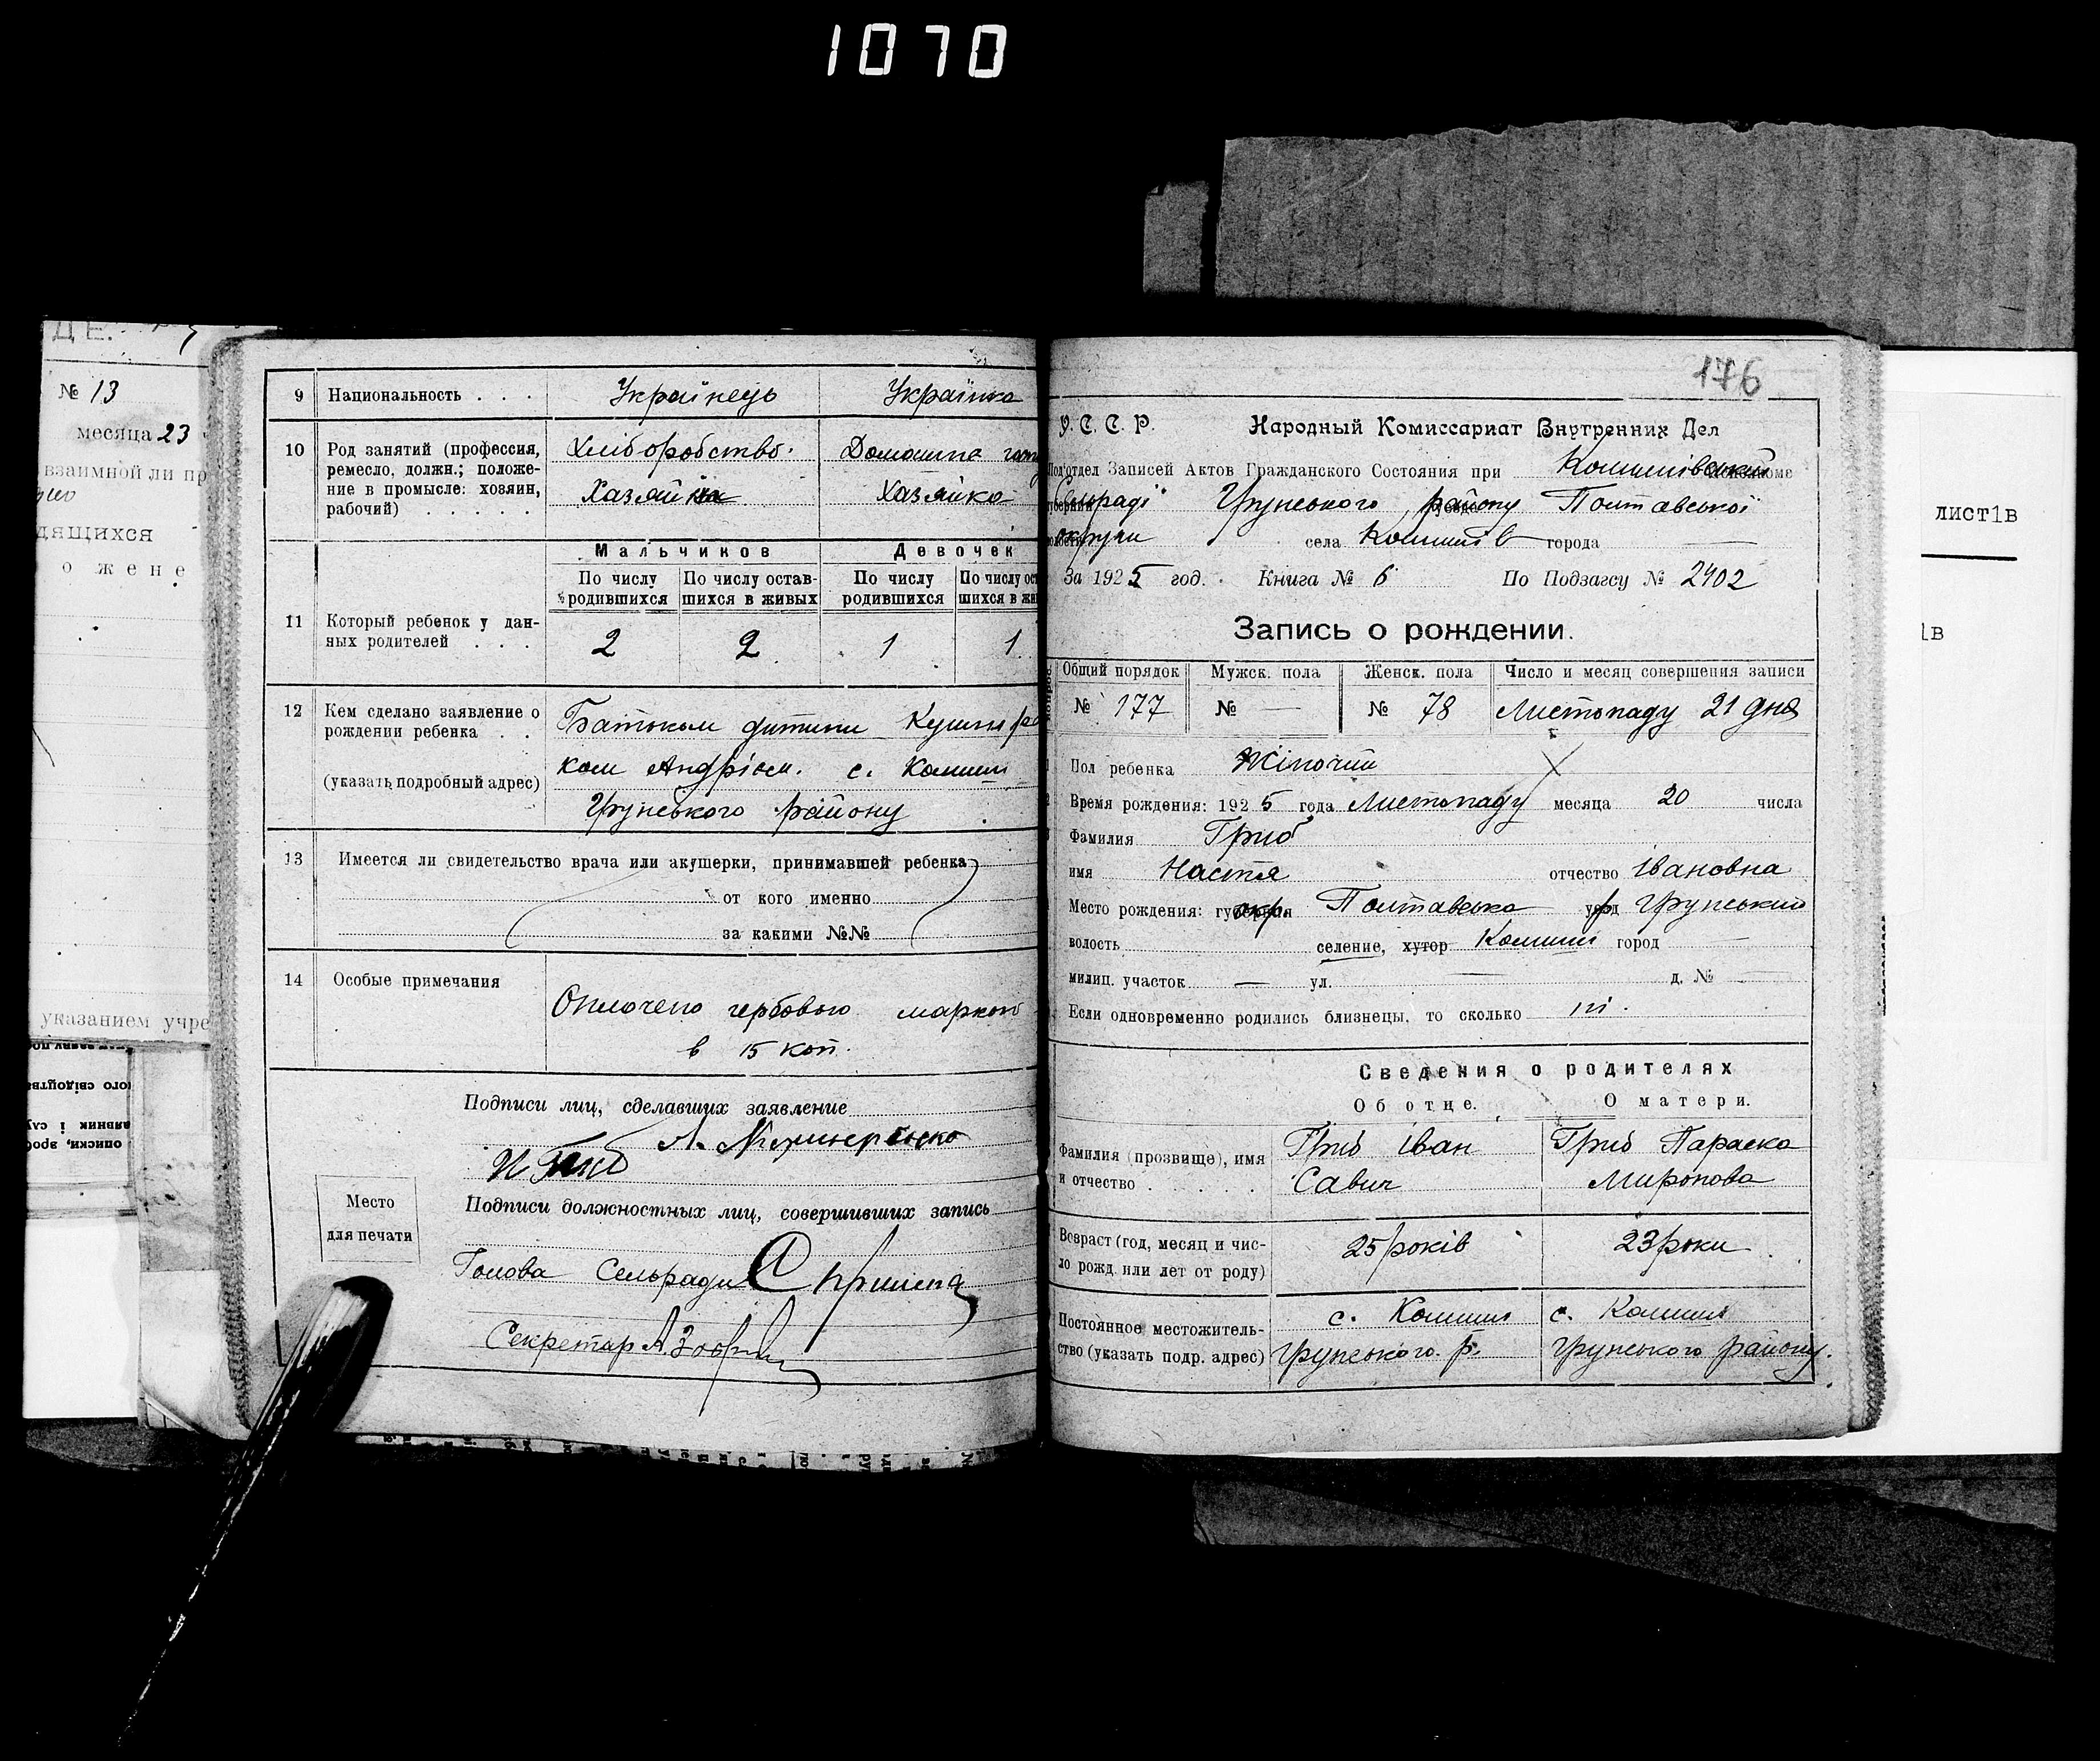 1070
ДЕ.
№ 13
месяца 23
взаимной ли пр
дящихся
о жене
указанием учре
9 Национальность . . . Українець Українка
10 Род занятий (профессия, ремесло, должн.; положение в промысле: хозяин, рабочий) . . . . .
Хліборобство. Домашне
Хазяйка
11 Который ребенок у данных родителей . . .
Мальчиков Девочек
По числу родившихся По числу оставшихся в живых По числу родившихся По числу ост шихся в жи
2 2 1 1
12 Кем сделано заявление о рождении ребенка . .
(указать подробный адрес)
Батьком дитини
ком Андрієм. с. Комиши
Грунського району
13 Имеется ли свидетельство врача или акушерки, принимавшей ребенка
от кого именно
за какими №№
14 Особые примечания
Оплочено гербовою маркою
в 15 коп.
Подписи лиц, сделавших заявление
И Гриб
Место для печати
Подписи должностных лиц, совершивших запись
Голова Сельради
Секретар А.
176
У. С. С. Р. Народный Комиссариат Внутренних Дел
Подотдел Записей Актов Гражданского Состояния при Комишівській
Сельраді Грунського району Полтавської
округи села Комишів города —
За 1925 год. Книга № 6 По Подзагсу № 2402
Запись о рождении.
Общий порядок Мужск. пола Женск. пола Число и месяц совершения записи
№ 177 № — № 78 Листопаду 21 дня
Пол ребенка Жіночий
Время рождения: 1925 года Листопаду месяца 20 числа
Фамилия Гриб
имя Настя отчество Івановна
Место рождения: губерния окр. Полтавська уезд р Грунський
волость селение, хутор Комиші город —
милиц. участок — ул. — д. № —
Если одновременно родились близнецы, то сколько ні.
Сведения о родителях
Об отце. О матери.
Фамилия (прозвище), имя и отчество . . . . .
Гриб Іван Гриб Параска
Савич Миронова
Возраст (год, месяц и число рожд. или лет от роду)
25 років 23 роки
Постоянное местожительство (указать подр. адрес)
с. Комиші с. Комиші
Грунського р. Грунського району.
лист1в
1в